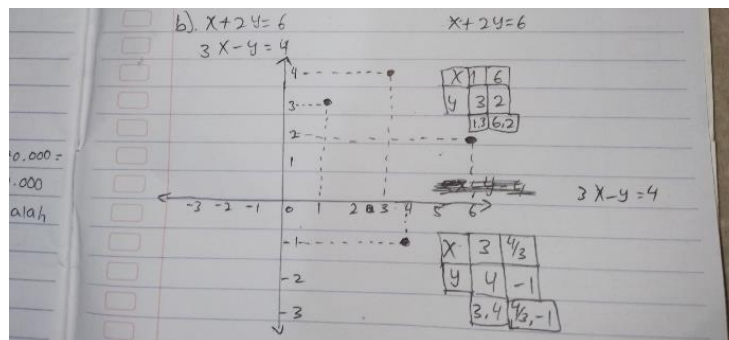 b). x+2y=6
x+2y=6
3x-y=4
4
3
2
1
x 1 6
y 3 2
1,3 6,2
0.000=
.000
alah
-3 -2 -1 0 1 2 3 4 5 6
3x-y=4
-1
-2
-3
x 3 4/3
y 4 -1
3,4 4/3,-1